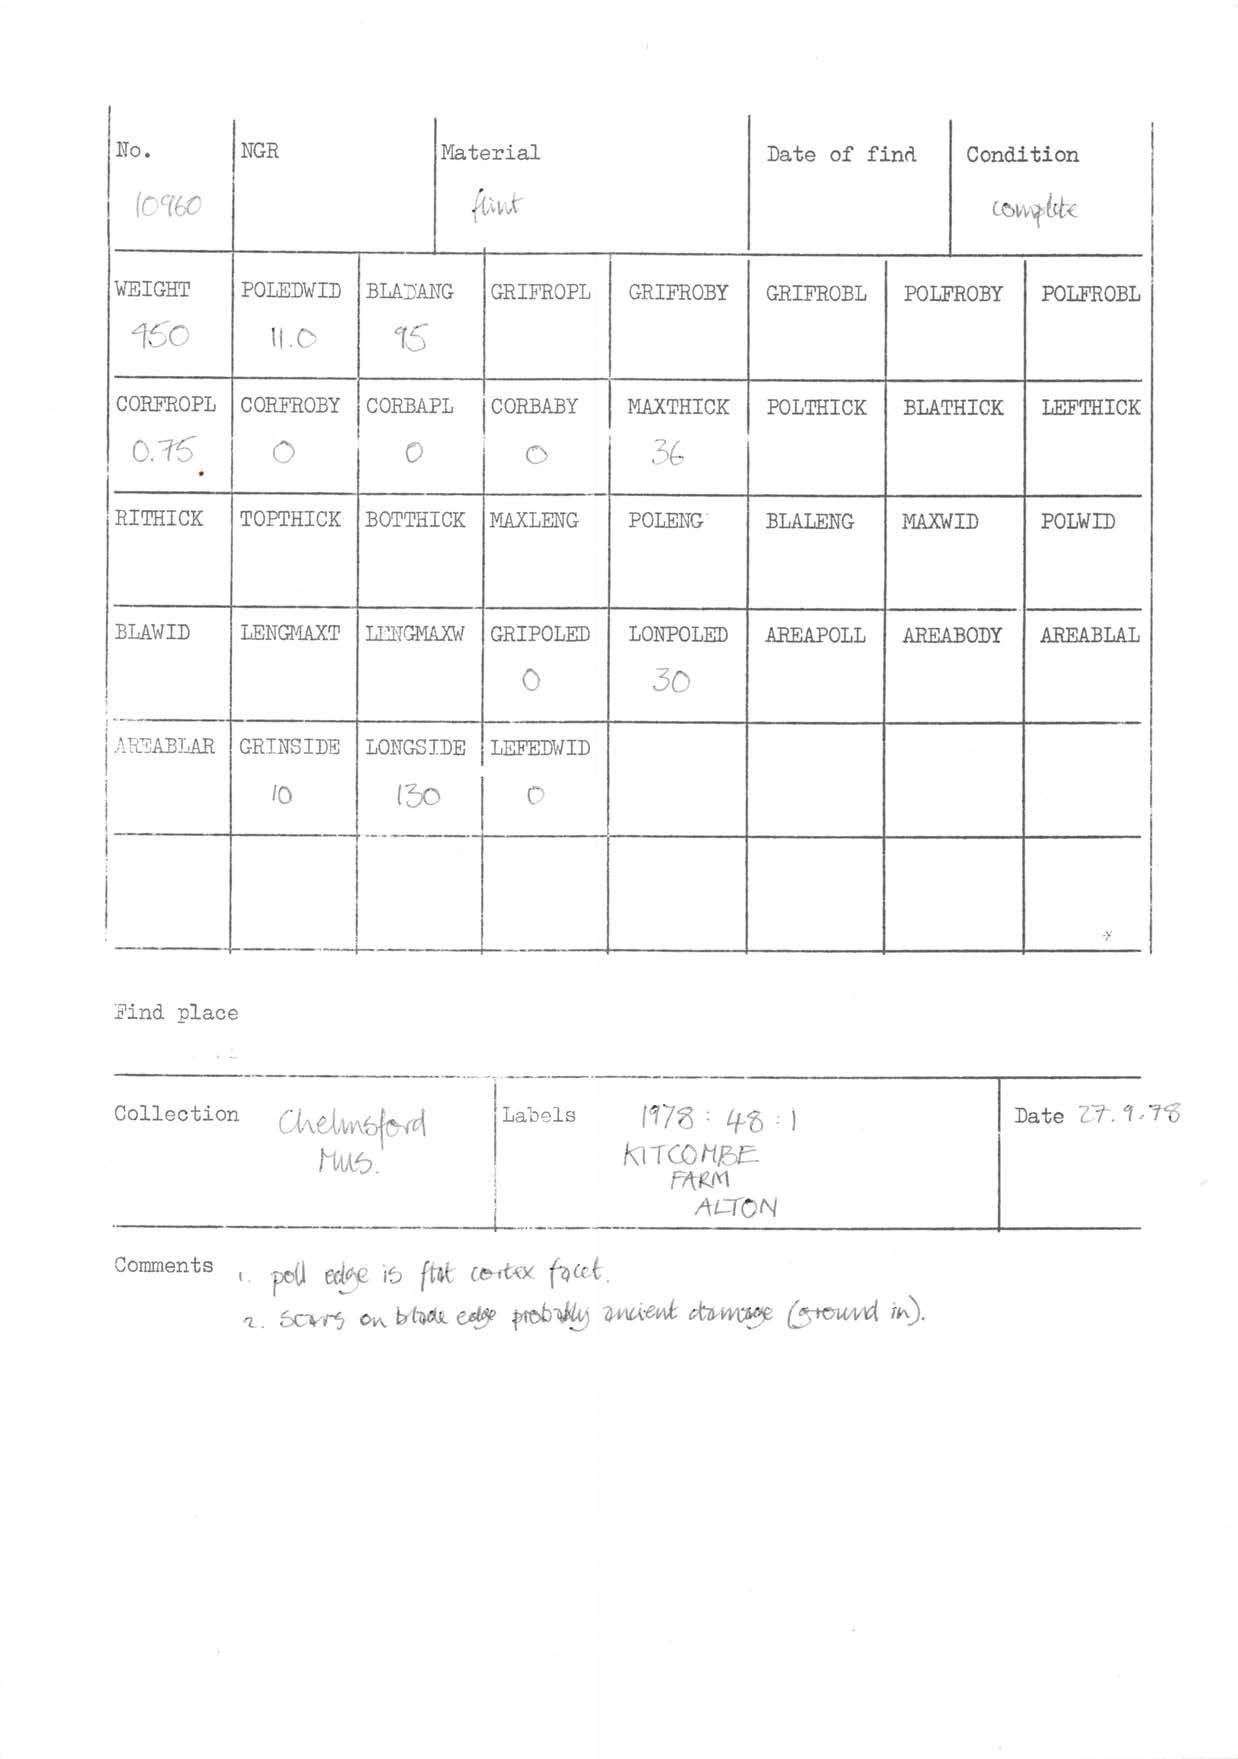 No. NGR Material Date of find Condition
10960 flint complete
WEIGHT POLEDWID BLADANG GRIFROPL GRIFROBY GRIFROBL POLFROBY POLFROBL
450 11.0 95
CORFROPL CORFROBY CORBAPL CORBABY MAXTHICK POLTHICK BLATHICK LEFTHICK
0.75 0 0 0 36
RITHICK TOPTHICK BOTTHICK MAXLENG POLENG BLALENG MAXWID POLWID
BLAWID LENGMAXT LENGMAXW GRIPOLED LONPOLED AREAPOLL AREABODY AREABLAL
0 30
AREABLAR GRINSIDE LONGSIDE LEFEDWID
10 130 0
Find place
Collection Chelmsford Labels 1978:48:1 Date 27.9.78
Mus. KITCOMBE
FARM
ALTON
Comments 1. poll edge is flat cortex facet.
2. Scars on blade edge probably ancient damage (ground in).